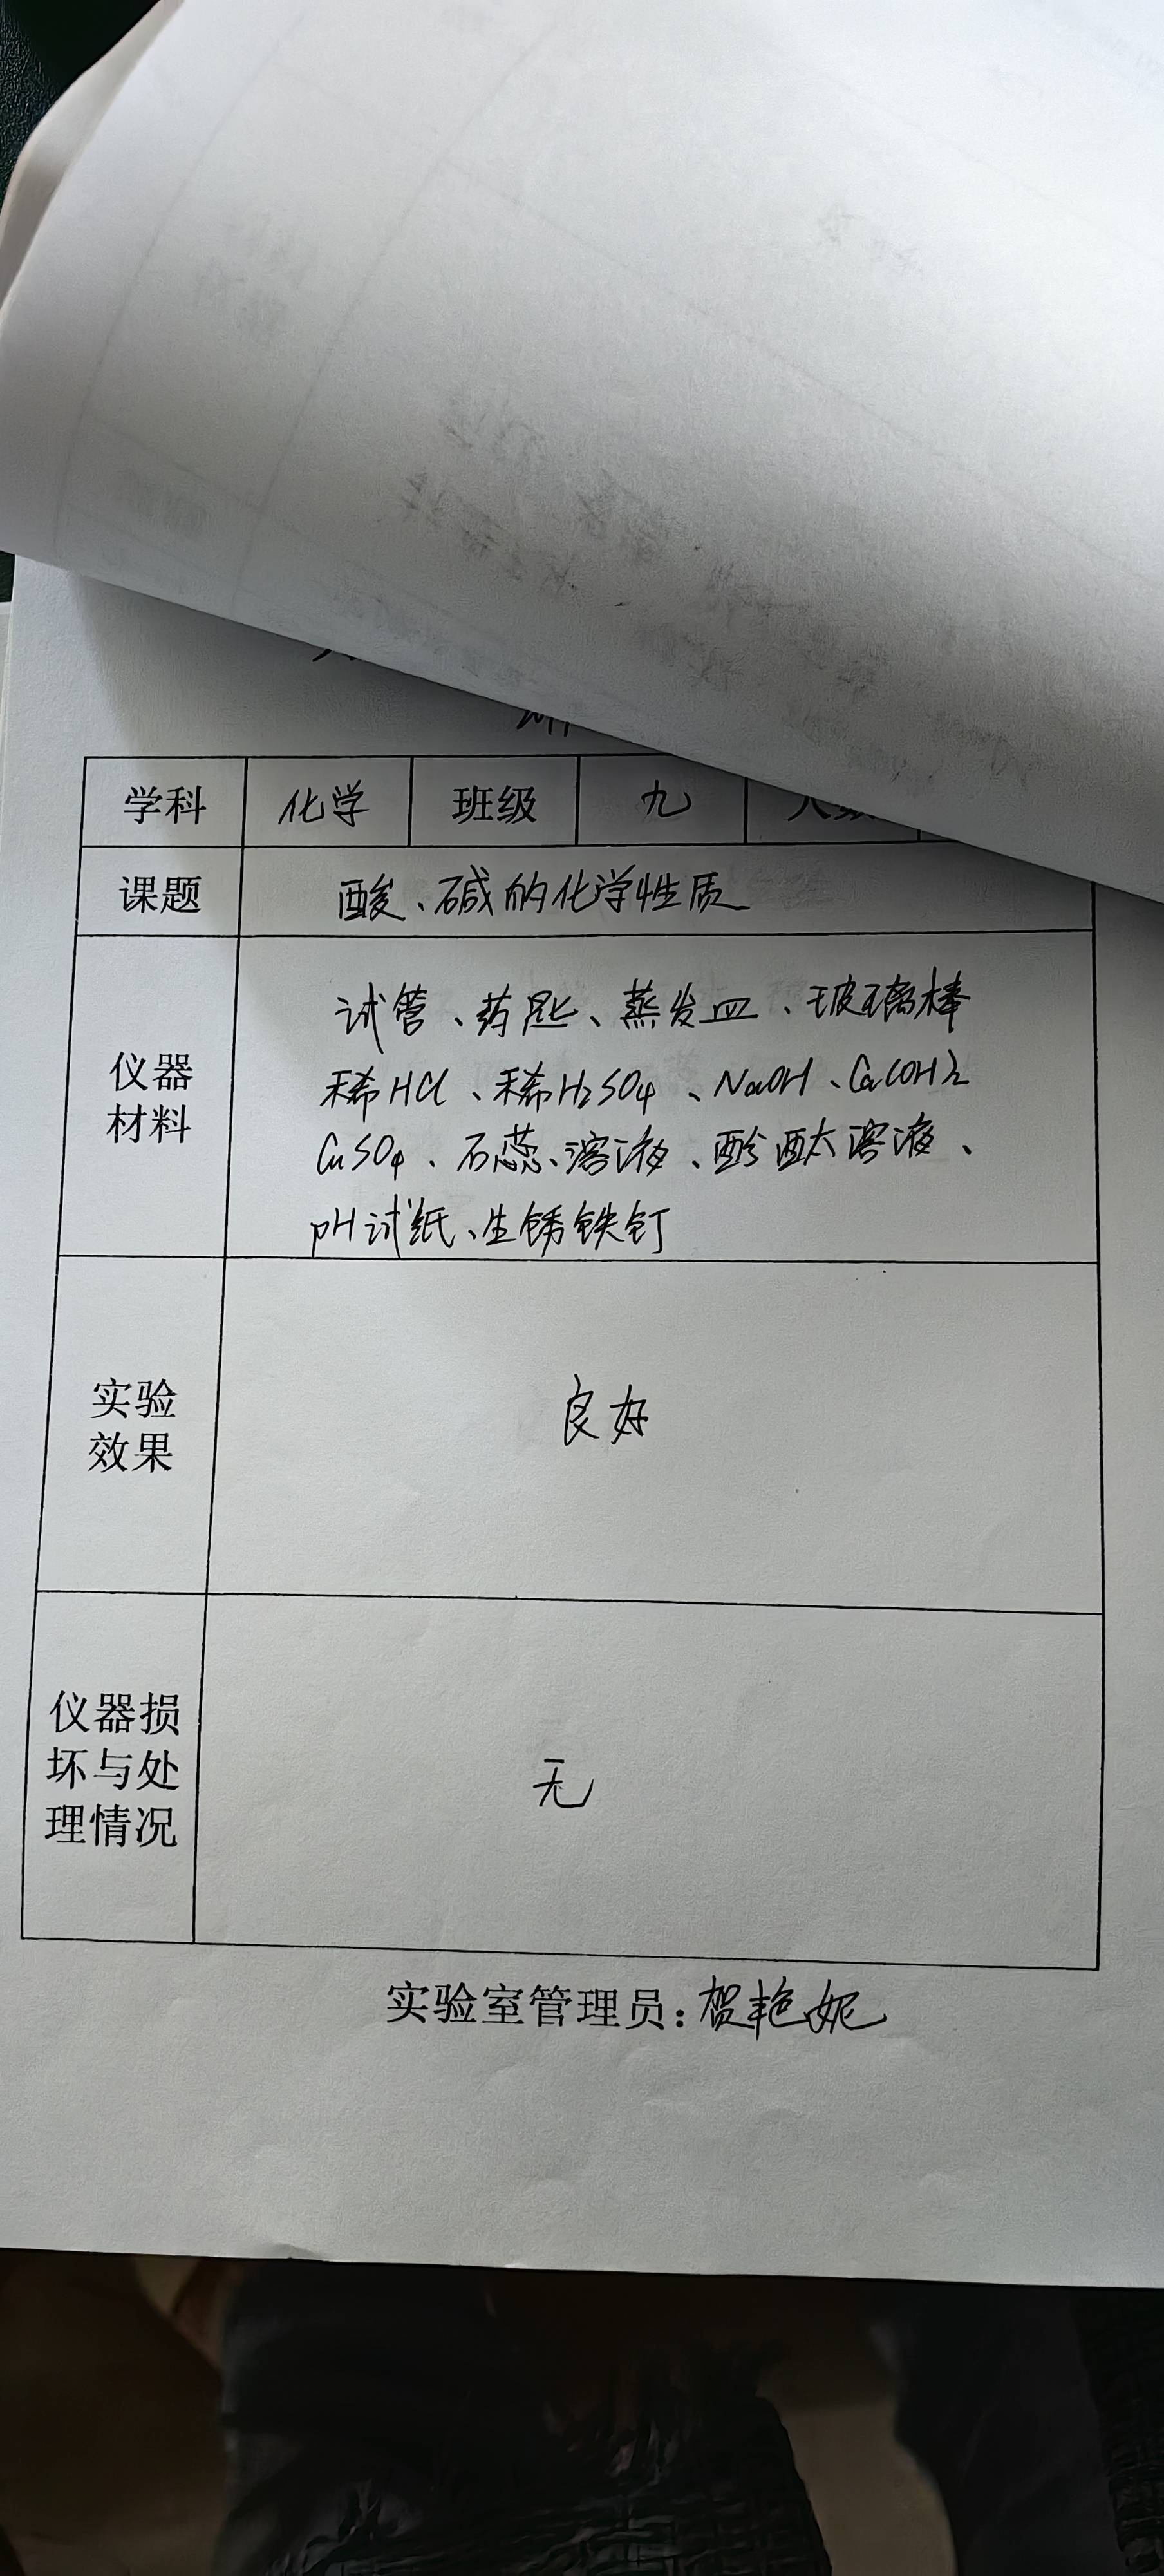 学科 化学 班级 九 人数
课题 酸、碱的化学性质
仪器材料
试管、药匙、蒸发皿、玻璃棒
稀HCl、稀H₂SO₄、NaOH、Ca(OH)₂
CuSO₄、石蕊、溶液、酚酞溶液、
pH试纸、生锈铁钉
实验效果 良好
仪器损坏与处理情况 无
实验室管理员：贺艳妮